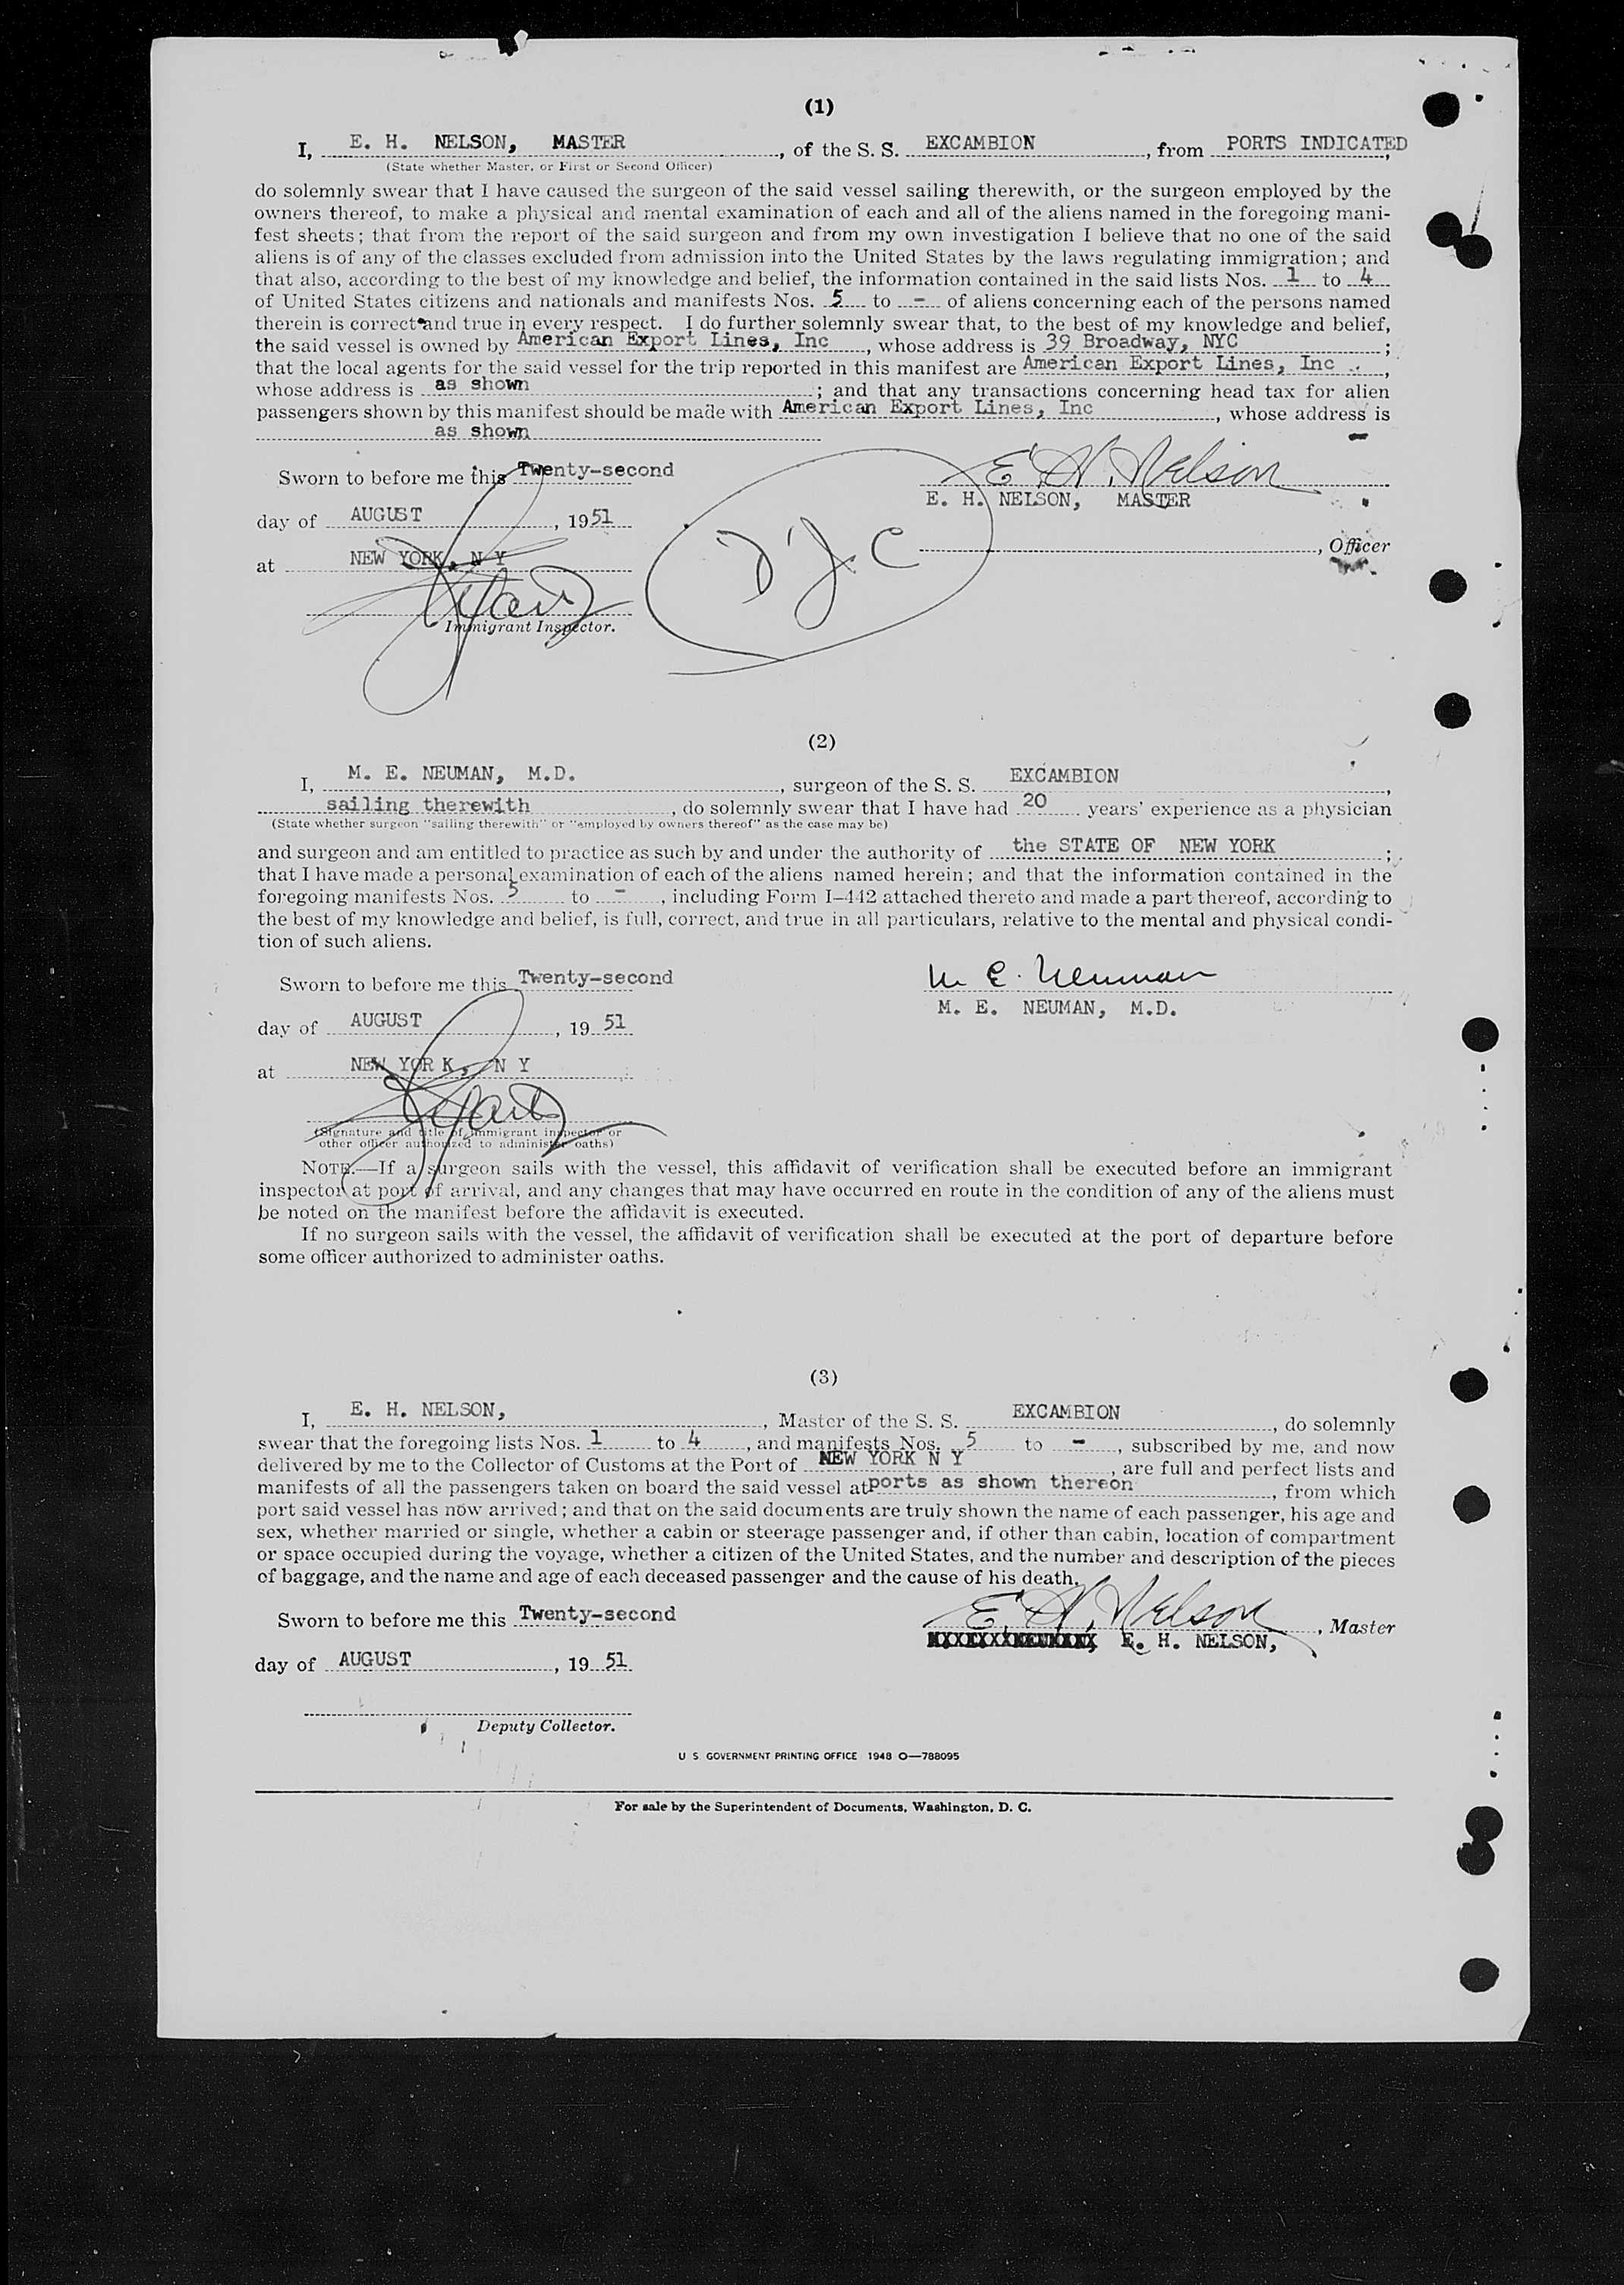 (1)
I, E. H. NELSON, MASTER, of the S. S. EXCAMBION, from PORTS INDICATED,
(State whether Master, or First or Second Officer)
do solemnly swear that I have caused the surgeon of the said vessel sailing therewith, or the surgeon employed by the
owners thereof, to make a physical and mental examination of each and all of the aliens named in the foregoing mani-
fest sheets; that from the report of the said surgeon and from my own investigation I believe that no one of the said
aliens is of any of the classes excluded from admission into the United States by the laws regulating immigration; and
that also, according to the best of my knowledge and belief, the information contained in the said lists Nos. 1 to 4
of United States citizens and nationals and manifests Nos. 5 to - of aliens concerning each of the persons named
therein is correct and true in every respect. I do further solemnly swear that, to the best of my knowledge and belief,
the said vessel is owned by American Export Lines, Inc, whose address is 39 Broadway, NYC;
that the local agents for the said vessel for the trip reported in this manifest are American Export Lines, Inc,
whose address is as shown; and that any transactions concerning head tax for alien
passengers shown by this manifest should be made with American Export Lines, Inc, whose address is
as shown
Sworn to before me this Twenty-second
E. H. Nelson
E. H. NELSON, MASTER
day of AUGUST, 1951
D J C
, Officer
at NEW YORK, N Y
Immigrant Inspector.
(2)
I, M. E. NEUMAN, M.D., surgeon of the S. S. EXCAMBION,
sailing therewith, do solemnly swear that I have had 20 years' experience as a physician
(State whether surgeon "sailing therewith" or "employed by owners thereof" as the case may be)
and surgeon and am entitled to practice as such by and under the authority of the STATE OF NEW YORK;
that I have made a personal examination of each of the aliens named herein; and that the information contained in the
foregoing manifests Nos. 5 to -, including Form I-442 attached thereto and made a part thereof, according to
the best of my knowledge and belief, is full, correct, and true in all particulars, relative to the mental and physical condi-
tion of such aliens.
Sworn to before me this Twenty-second
M E. Neuman
M. E. NEUMAN, M.D.
day of AUGUST, 19 51
at NEW YOR K, N Y
(Signature and title of immigrant inspector or
other officer authorized to administer oaths)
NOTE.—If a surgeon sails with the vessel, this affidavit of verification shall be executed before an immigrant
inspector at port of arrival, and any changes that may have occurred en route in the condition of any of the aliens must
be noted on the manifest before the affidavit is executed.
If no surgeon sails with the vessel, the affidavit of verification shall be executed at the port of departure before
some officer authorized to administer oaths.
(3)
I, E. H. NELSON, , Master of the S. S. EXCAMBION, do solemnly
swear that the foregoing lists Nos. 1 to 4, and manifests Nos. 5 to -, subscribed by me, and now
delivered by me to the Collector of Customs at the Port of NEW YORK N Y, are full and perfect lists and
manifests of all the passengers taken on board the said vessel at ports as shown thereon, from which
port said vessel has now arrived; and that on the said documents are truly shown the name of each passenger, his age and
sex, whether married or single, whether a cabin or steerage passenger and, if other than cabin, location of compartment
or space occupied during the voyage, whether a citizen of the United States, and the number and description of the pieces
of baggage, and the name and age of each deceased passenger and the cause of his death.
Sworn to before me this Twenty-second
E. H. Nelson, Master
E. H. NELSON,
day of AUGUST, 19 51
Deputy Collector.
U S GOVERNMENT PRINTING OFFICE 1948 O—788095
For sale by the Superintendent of Documents, Washington, D. C.